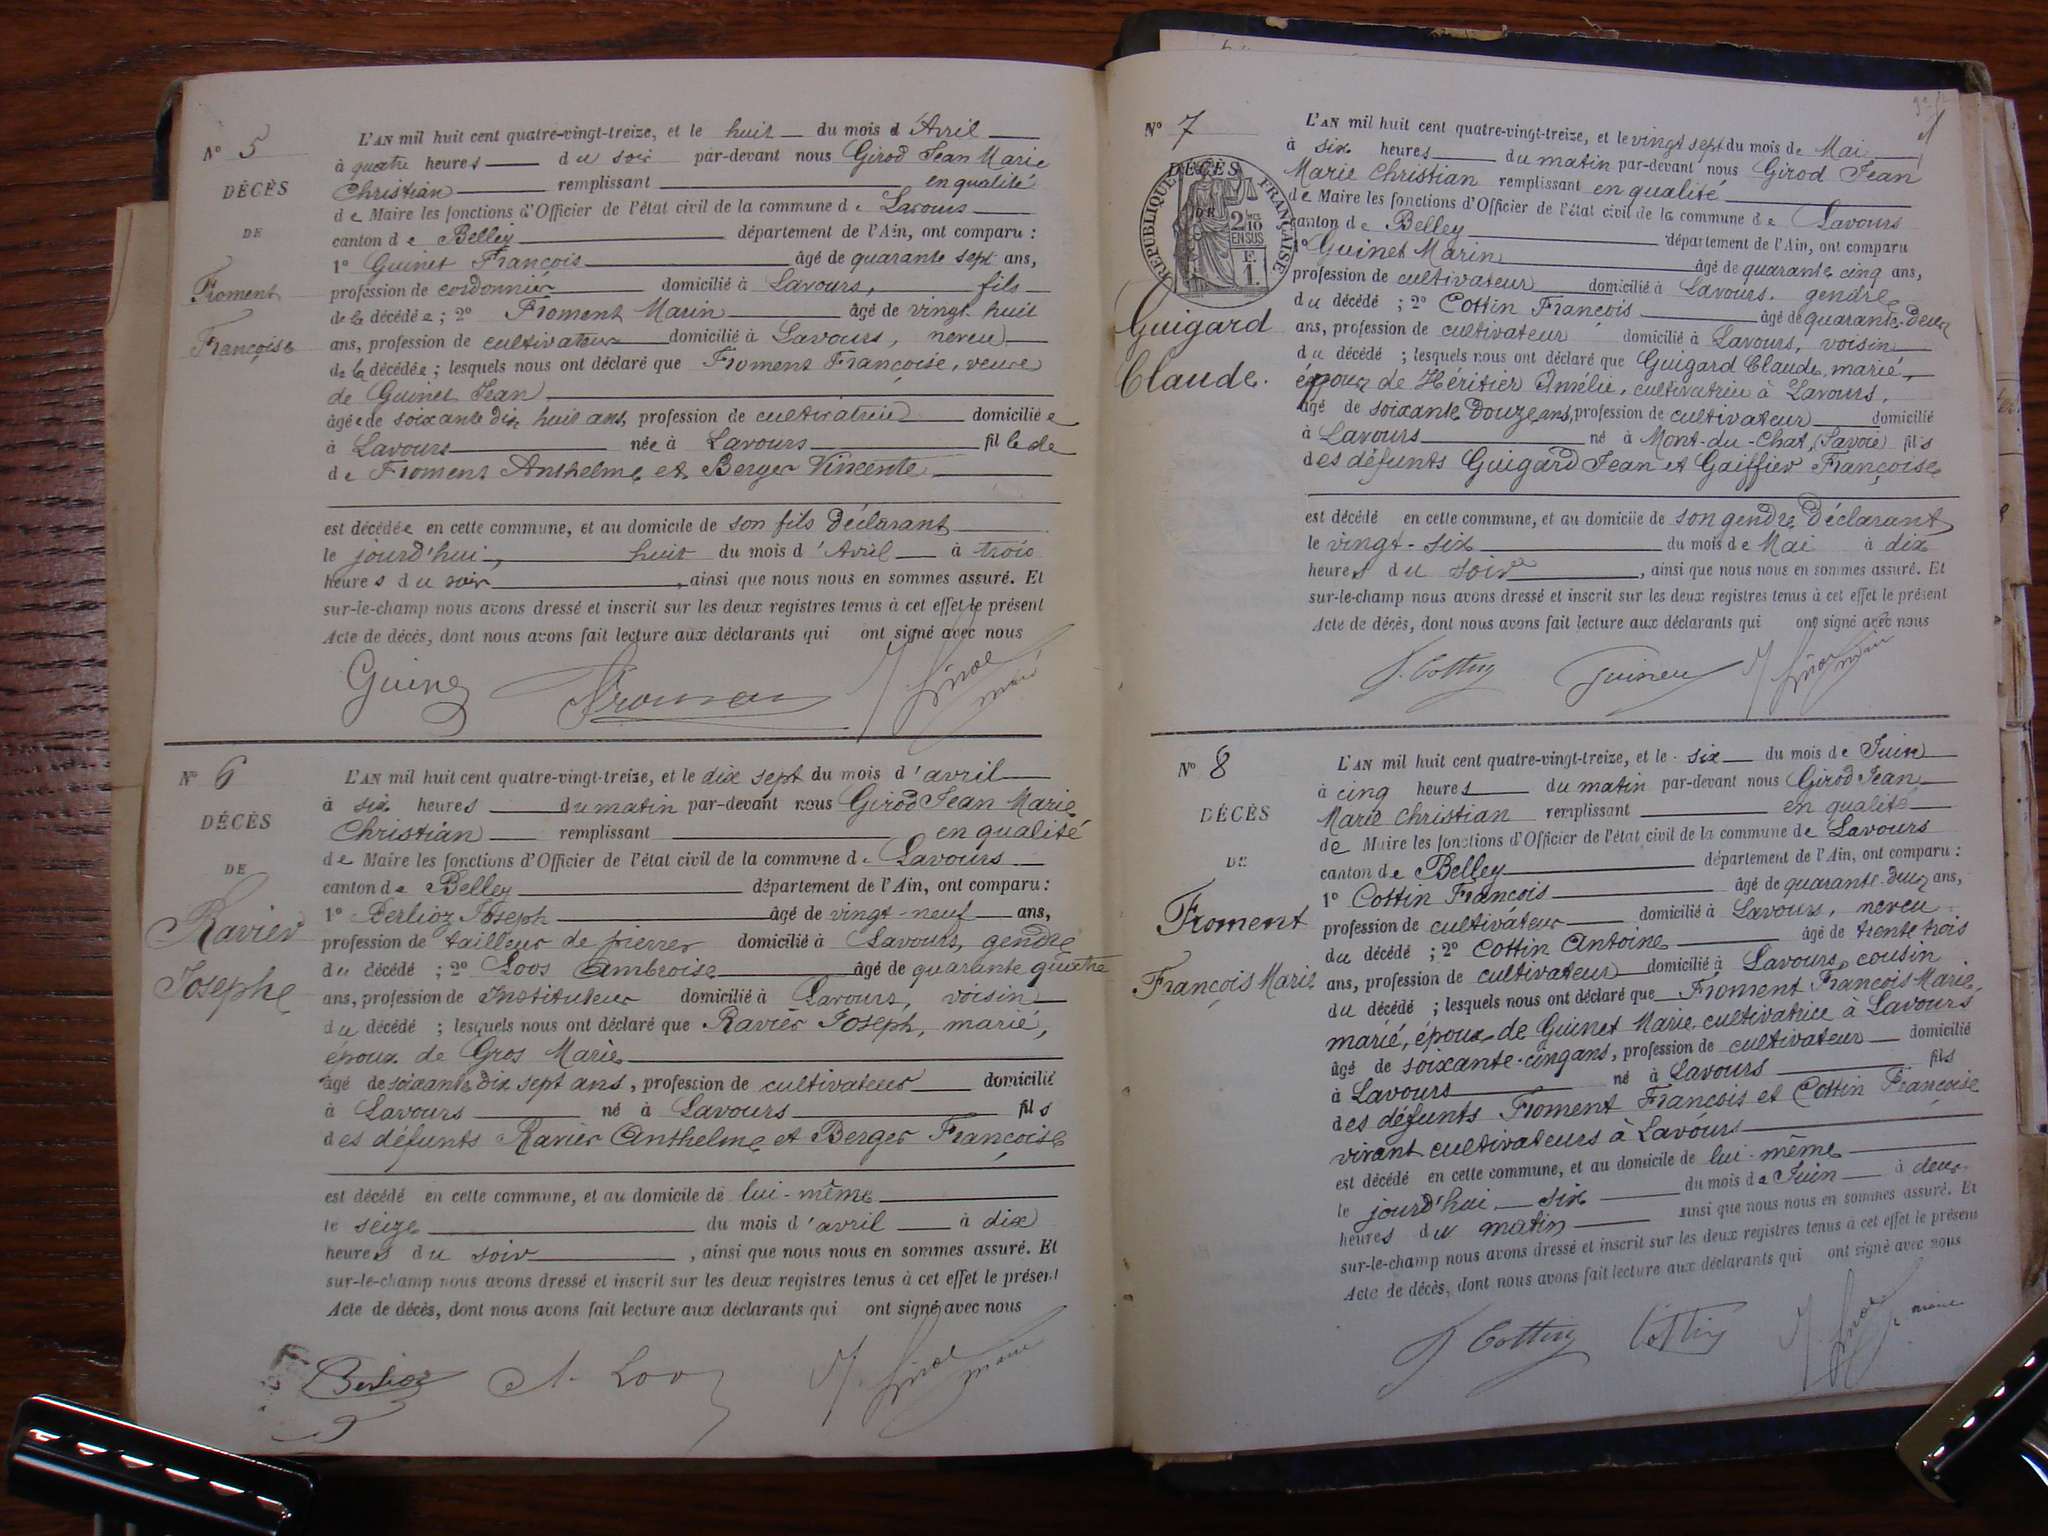 N° 5
DÉCÈS
DE
Froment
Françoise
L'AN mil huit cent quatre-vingt-treize, et le huit du mois d'Avril
à quatre heures du soir par-devant nous Girod Jean Marie
Christian remplissant en qualité
de Maire les fonctions d'Officier de l'état civil de la commune de Lavours
canton de Belley département de l'Ain, ont comparu :
1° Guinet François âgé de quarante sept ans,
profession de cordonnier domicilié à Lavours, fils
de la décédée ; 2° Froment Marin âgé de vingt huit
ans, profession de cultivateur domicilié à Lavours, neveu
de la décédée ; lesquels nous ont déclaré que Froment Françoise, veuve
de Guinet Jean
âgée de soixante dix huit ans, profession de cultivatrice domiciliée
à Lavours née à Lavours fille de
de Froment Anthelme et Berger Vincente
est décédée en cette commune, et au domicile de son fils déclarant
le jourd'hui, huit du mois d'Avril à trois
heures du soir, ainsi que nous nous en sommes assuré. Et
sur-le-champ nous avons dressé et inscrit sur les deux registres tenus à cet effet le présent
Acte de décès, dont nous avons fait lecture aux déclarants qui ont signé avec nous
Guinet Froment Girod maire
N° 6
DÉCÈS
DE
Ravier
Joseph
L'AN mil huit cent quatre-vingt-treize, et le dix sept du mois d'avril
à six heures du matin par-devant nous Girod Jean Marie
Christian remplissant en qualité
de Maire les fonctions d'Officier de l'état civil de la commune de Lavours
canton de Belley département de l'Ain, ont comparu :
1° Berlioz Joseph âgé de vingt-neuf ans,
profession de tailleur de pierres domicilié à Lavours, gendre
du décédé ; 2° Loos Ambroise âgé de quarante quatre
ans, profession de Instituteur domicilié à Lavours, voisin
du décédé ; lesquels nous ont déclaré que Ravier Joseph, marié,
époux de Gros Marie
âgé de soixante dix sept ans, profession de cultivateur domicilié
à Lavours né à Lavours fils
des défunts Ravier Anthelme et Berger Françoise
est décédé en cette commune, et au domicile de lui-même
le seize du mois d'avril à dix
heures du soir, ainsi que nous nous en sommes assuré. Et
sur-le-champ nous avons dressé et inscrit sur les deux registres tenus à cet effet le présent
Acte de décès, dont nous avons fait lecture aux déclarants qui ont signé avec nous
Berlioz A. Loos Girod maire
N° 7
DÉCÈS
RÉPUBLIQUE FRANÇAISE
2/10 EN SUS
F. 1.
Guigard
Claude.
L'AN mil huit cent quatre-vingt-treize, et le vingt sept du mois de Mai
à six heures du matin par-devant nous Girod Jean
Marie Christian remplissant en qualité
de Maire les fonctions d'Officier de l'état civil de la commune de Lavours
canton de Belley département de l'Ain, ont comparu
1° Guinet Marin âgé de quarante cinq ans,
profession de cultivateur domicilié à Lavours, gendre
du décédé ; 2° Cottin François âgé de quarante-deux
ans, profession de cultivateur domicilié à Lavours, voisin
du décédé ; lesquels nous ont déclaré que Guigard Claude, marié,
époux de Héritier Amélie, cultivatrice à Lavours,
âgé de soixante douze ans, profession de cultivateur domicilié
à Lavours né à Mont-du-Chat, (Savoie) fils
des défunts Guigard Jean et Gaiffier Françoise
est décédé en cette commune, et au domicile de son gendre déclarant
le vingt-six du mois de Mai à dix
heures du soir, ainsi que nous nous en sommes assuré. Et
sur-le-champ nous avons dressé et inscrit sur les deux registres tenus à cet effet le présent
Acte de décès, dont nous avons fait lecture aux déclarants qui ont signé avec nous
F. Cottin Guinet Girod maire
N° 8
DÉCÈS
DE
Froment
François Marie
L'AN mil huit cent quatre-vingt-treize, et le six du mois de Juin
à cinq heures du matin par-devant nous Girod Jean
Marie Christian remplissant en qualité
de Maire les fonctions d'Officier de l'état civil de la commune de Lavours
canton de Belley département de l'Ain, ont comparu :
1° Cottin François âgé de quarante-deux ans,
profession de cultivateur domicilié à Lavours, neveu
du décédé ; 2° Cottin Antoine âgé de trente trois
ans, profession de cultivateur domicilié à Lavours, cousin
du décédé ; lesquels nous ont déclaré que Froment François Marie,
marié, époux de Guinet Marie, cultivatrice à Lavours,
âgé de soixante-cinq ans, profession de cultivateur domicilié
à Lavours né à Lavours fils
des défunts Froment François et Cottin Françoise
vivant cultivateurs à Lavours
est décédé en cette commune, et au domicile de lui-même
le jourd'hui six du mois de Juin à deux
heures du matin ainsi que nous nous en sommes assuré. Et
sur-le-champ nous avons dressé et inscrit sur les deux registres tenus à cet effet le présent
Acte de décès, dont nous avons fait lecture aux déclarants qui ont signé avec nous
F. Cottin Cottin Girod maire